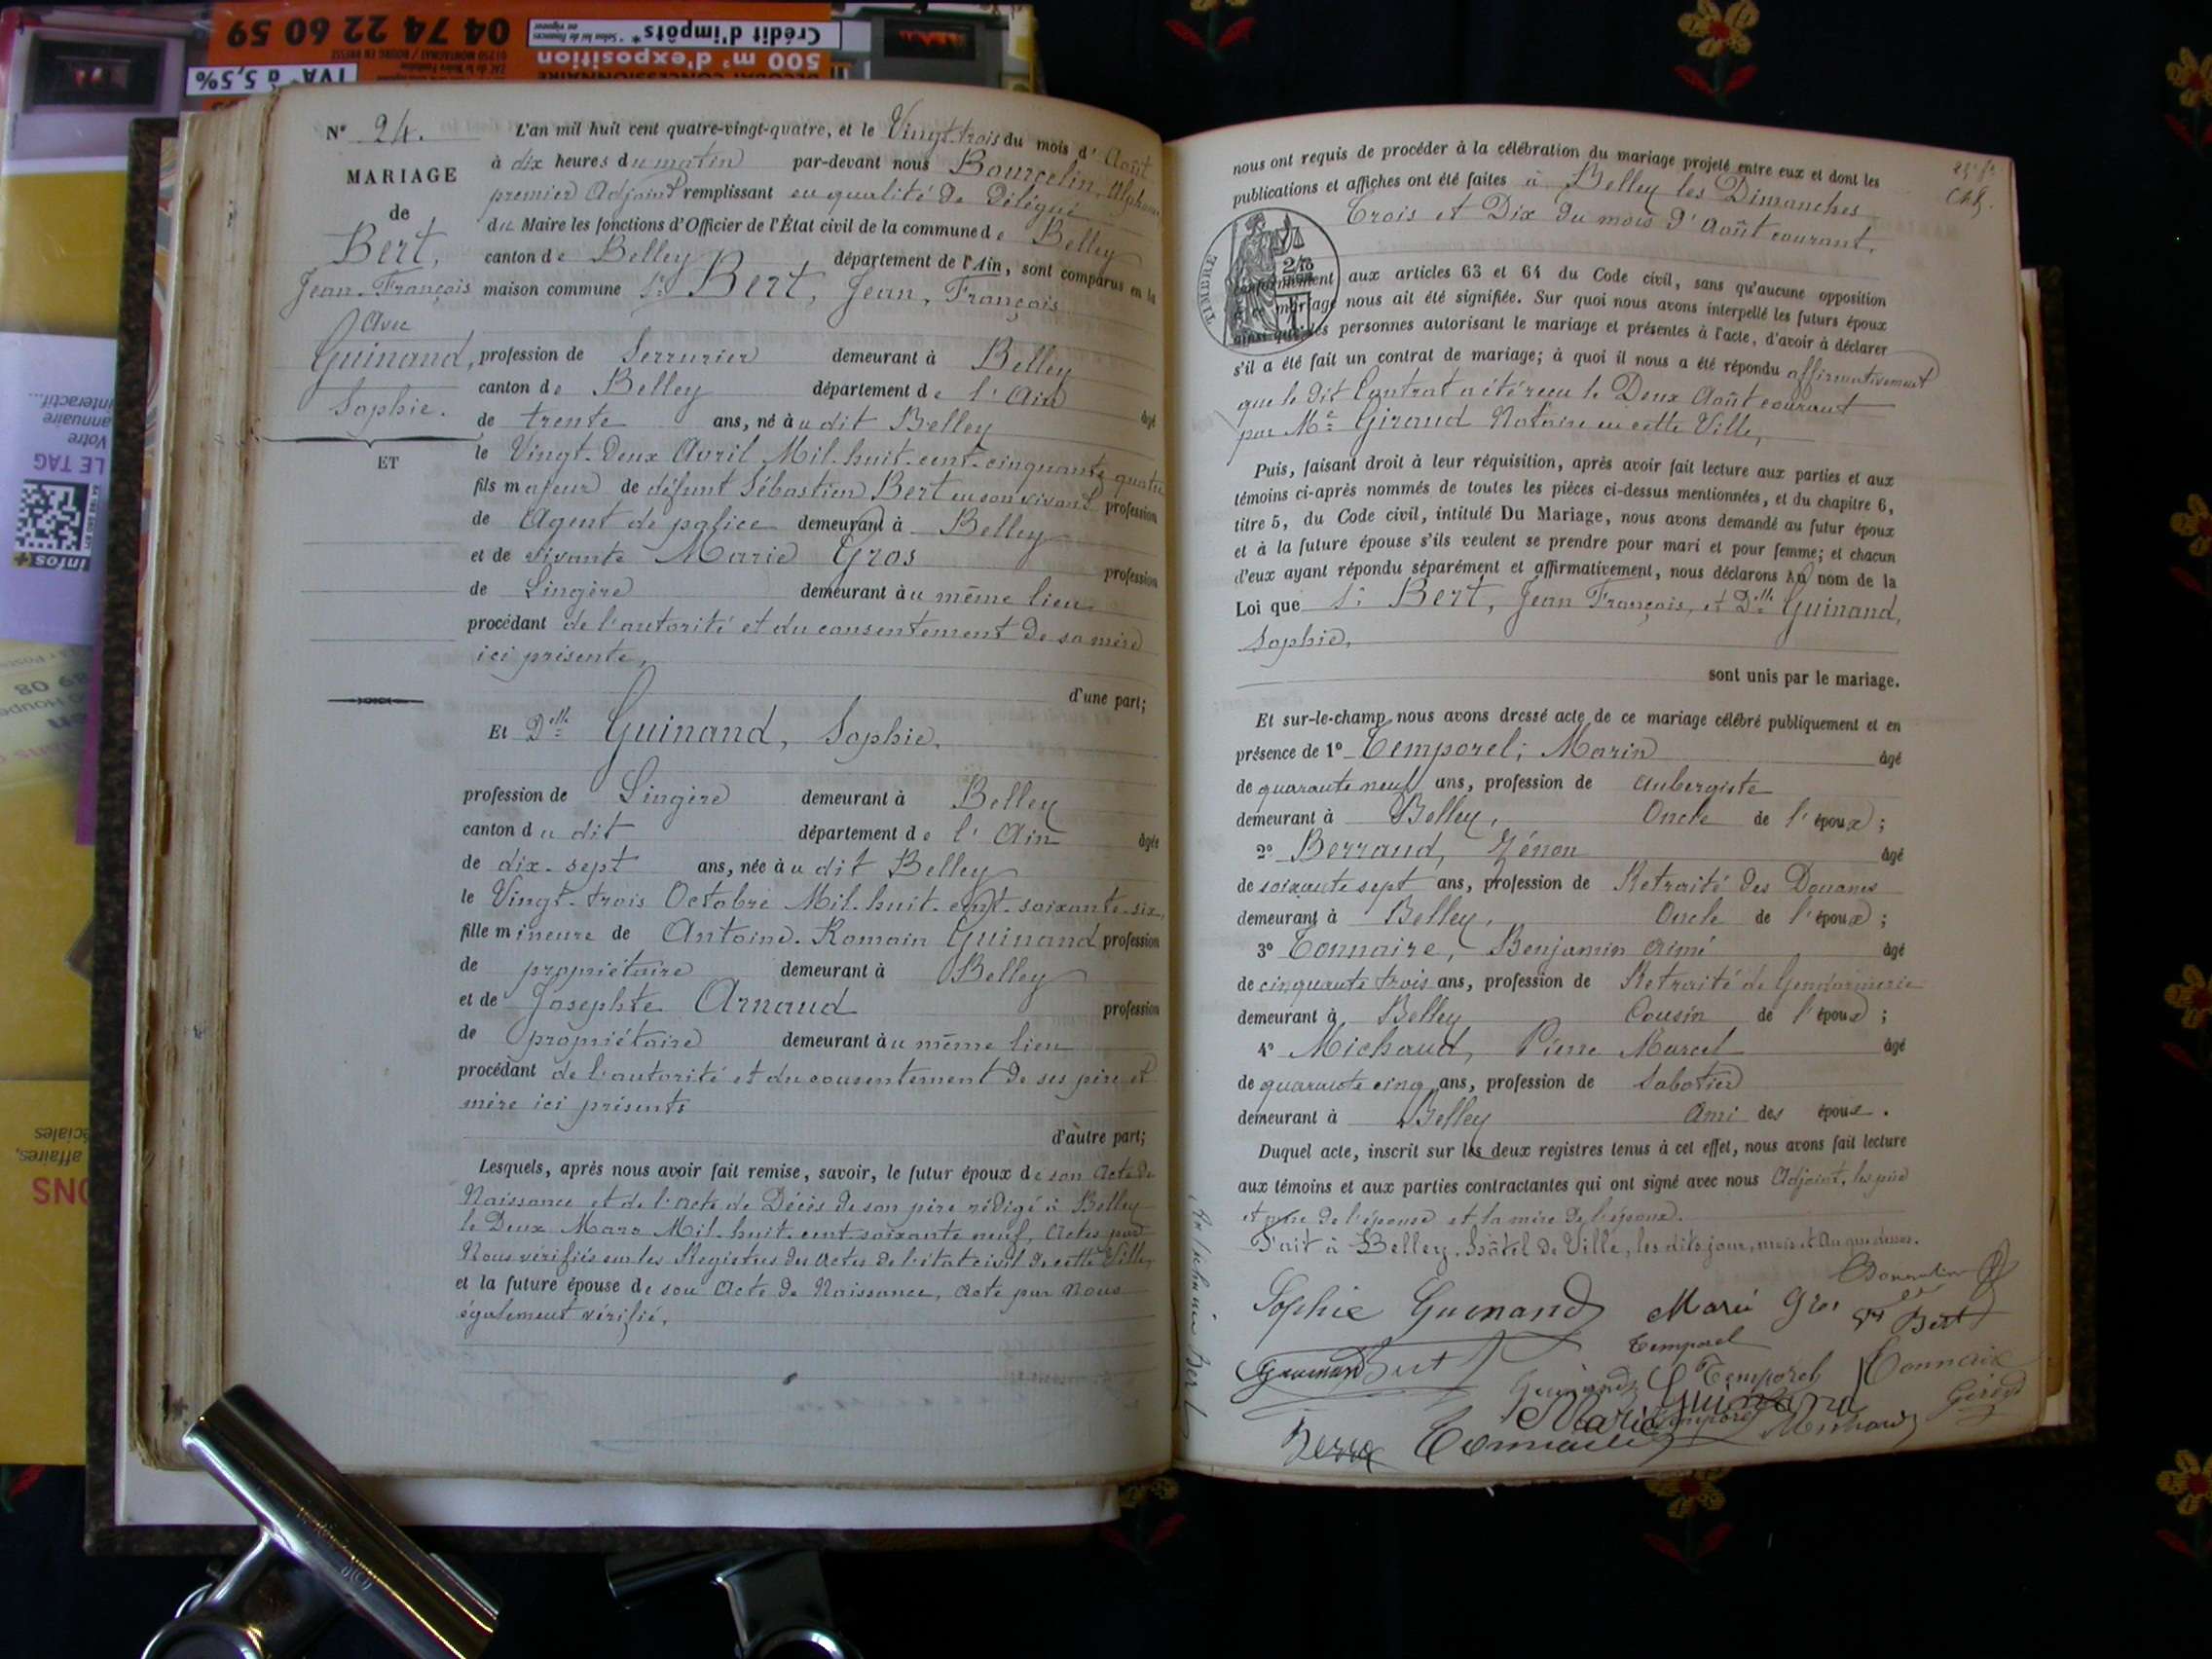 04 74 22 60 59
Crédit d'impôts*
500 m² d'exposition
TVA à 5,5%
Votre
annuaire
interactif...
LE TAG
Infos+
N° 24.
MARIAGE
de
Bert,
Jean-François
Avec
Guinand,
Sophie.
ET
L'an mil huit cent quatre-vingt-quatre, et le Vingt-trois du mois d'Août
à dix heures du matin par-devant nous Bourcelin, Alphonse
premier Adjoint remplissant en qualité de Délégué
du Maire les fonctions d'Officier de l'État civil de la commune de Belley
canton de Belley département de l'Ain, sont comparus en la
maison commune Sr Bert, Jean, François
profession de Serrurier demeurant à Belley
canton de Belley département de l'Ain âgé
de trente ans, né àu dit Belley
le Vingt-Deux Avril Mil-huit-cent-cinquante-quatre
fils majeur de défunt Sébastien Bert en son vivant profession
de Agent de police demeurant à Belley
et de vivante Marie Gros profession
de Lingère demeurant àu même lieu
procédant de l'autorité et du consentement de sa mère
ici présente,
d'une part;
Et Dlle Guinand, Sophie,
profession de Lingère demeurant à Belley
canton du dit département de l'Ain âgée
de dix-sept ans, née àu dit Belley
le Vingt-trois Octobre Mil-huit-cent-soixante-six,
fille mineure de Antoine-Romain Guinand profession
de propriétaire demeurant à Belley
et de Josephte Arnaud profession
de propriétaire demeurant àu même lieu
procédant de l'autorité et du consentement de ses père et
mère ici présents
d'autre part;
Lesquels, après nous avoir fait remise, savoir, le futur époux de son Acte de
Naissance et de l'acte de Décès de son père rédigé à Belley
le Deux Mars Mil-huit-cent-soixante-neuf, Actes par
Nous vérifiés sur les Registres des Actes de l'état civil de cette Ville,
et la future épouse de son Acte de Naissance, Acte par Nous
également vérifié,
nous ont requis de procéder à la célébration du mariage projeté entre eux et dont les
publications et affiches ont été faites à Belley les Dimanches
Trois et Dix du mois d'Août courant,
TIMBRE
conformément aux articles 63 et 64 du Code civil, sans qu'aucune opposition
à ce mariage nous ait été signifiée. Sur quoi nous avons interpellé les futurs époux
ainsi que les personnes autorisant le mariage et présentes à l'acte, d'avoir à déclarer
s'il a été fait un contrat de mariage; à quoi il nous a été répondu affirmativement
que le dit Contrat a été reçu le Deux Août courant
par Me Giraud Notaire en cette Ville,
Puis, faisant droit à leur réquisition, après avoir fait lecture aux parties et aux
témoins ci-après nommés de toutes les pièces ci-dessus mentionnées, et du chapitre 6,
titre 5, du Code civil, intitulé Du Mariage, nous avons demandé au futur époux
et à la future épouse s'ils veulent se prendre pour mari et pour femme; et chacun
d'eux ayant répondu séparément et affirmativement, nous déclarons au nom de la
Loi que Sr Bert, Jean François, et Dlle Guinand,
Sophie,
sont unis par le mariage.
Et sur-le-champ nous avons dressé acte de ce mariage célébré publiquement et en
présence de 1° Temporel, Marin âgé
de quarante neuf ans, profession de Aubergiste
demeurant à Belley, Oncle de l'époux;
2° Berraud, Zénon âgé
de soixante sept ans, profession de Retraité des Douanes
demeurant à Belley, Oncle de l'époux;
3° Tonnaire, Benjamin Aimé âgé
de cinquante trois ans, profession de Retraité de Gendarmerie
demeurant à Belley Cousin de l'époux;
4° Michaud, Pierre Marcel âgé
de quarante cinq ans, profession de Sabotier
demeurant à Belley Ami des époux.
Duquel acte, inscrit sur les deux registres tenus à cet effet, nous avons fait lecture
aux témoins et aux parties contractantes qui ont signé avec nous Adjoint, les père
et mère de l'épouse et la mère de l'époux.
Fait à Belley, hôtel de Ville, les dits jour, mois et An que dessus.
Sophie Guinand Marie Gros Bert
Temporel
Temporel Tonnaire
Marie Guinand
Tonnaire Michaud